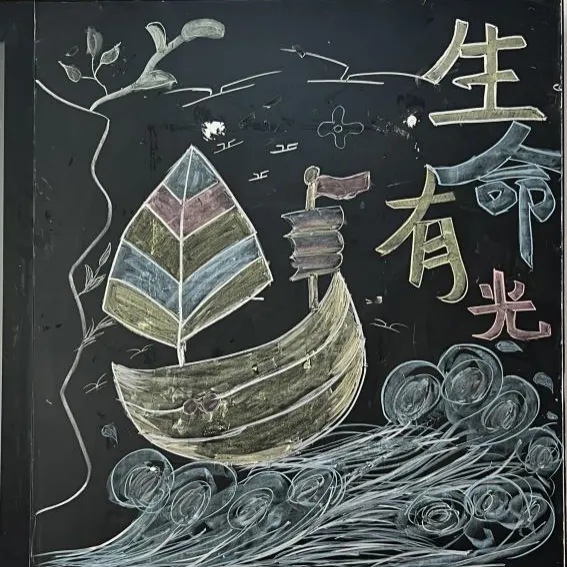 生命
有光